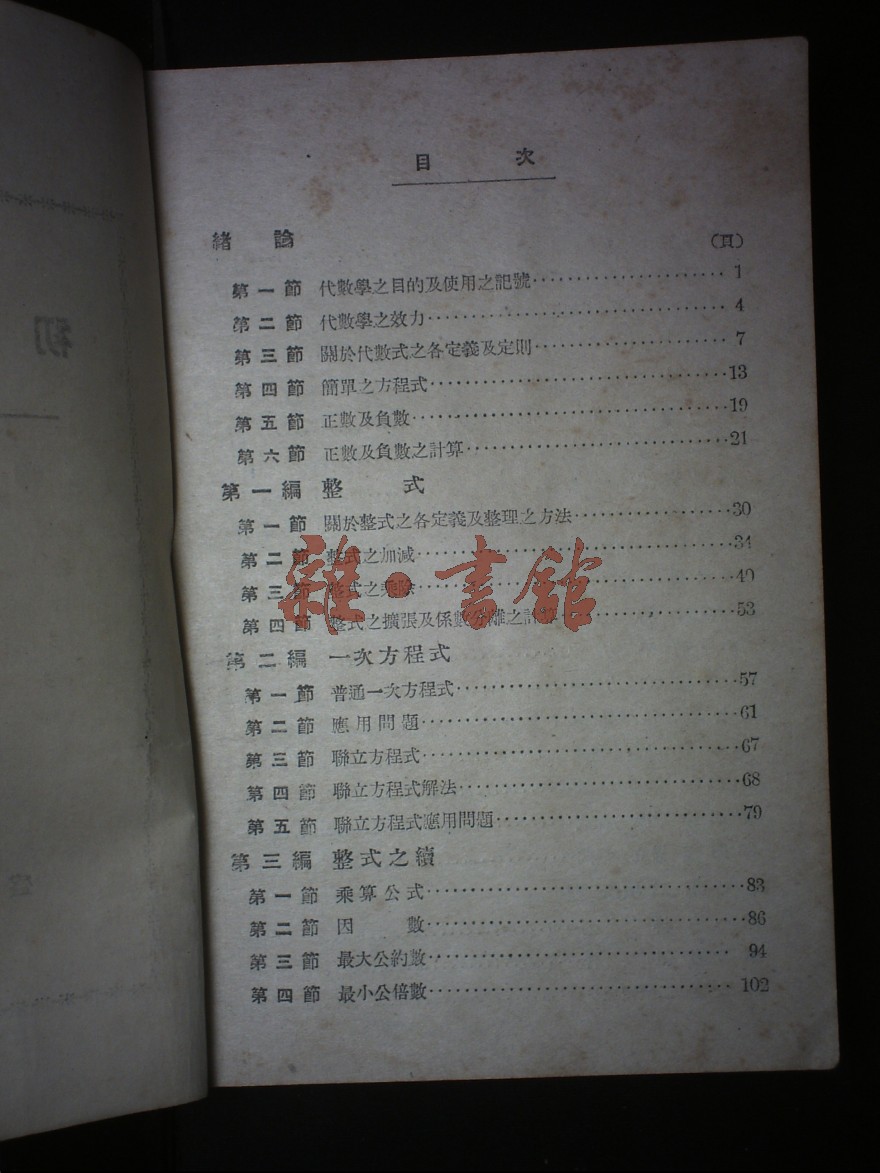 目 次
緒 論 (頁)
第一節 代數學之目的及使用之記號 1
第二節 代數學之效力 4
第三節 關於代數式之各定義及定則 7
第四節 簡單之方程式 13
第五節 正數及負數 19
第六節 正數及負數之計算 21
第一編 整 式
第一節 關於整式之各定義及整理之方法 30
第二節 整式之加減 34
第三節 整式之乘除 40
第四節 整式之擴張及係數分離之計算 53
雜·書館
第二編 一次方程式
第一節 普通一次方程式 57
第二節 應用問題 61
第三節 聯立方程式 67
第四節 聯立方程式解法 68
第五節 聯立方程式應用問題 79
第三編 整式之續
第一節 乘算公式 83
第二節 因 數 86
第三節 最大公約數 94
第四節 最小公倍數 102
初